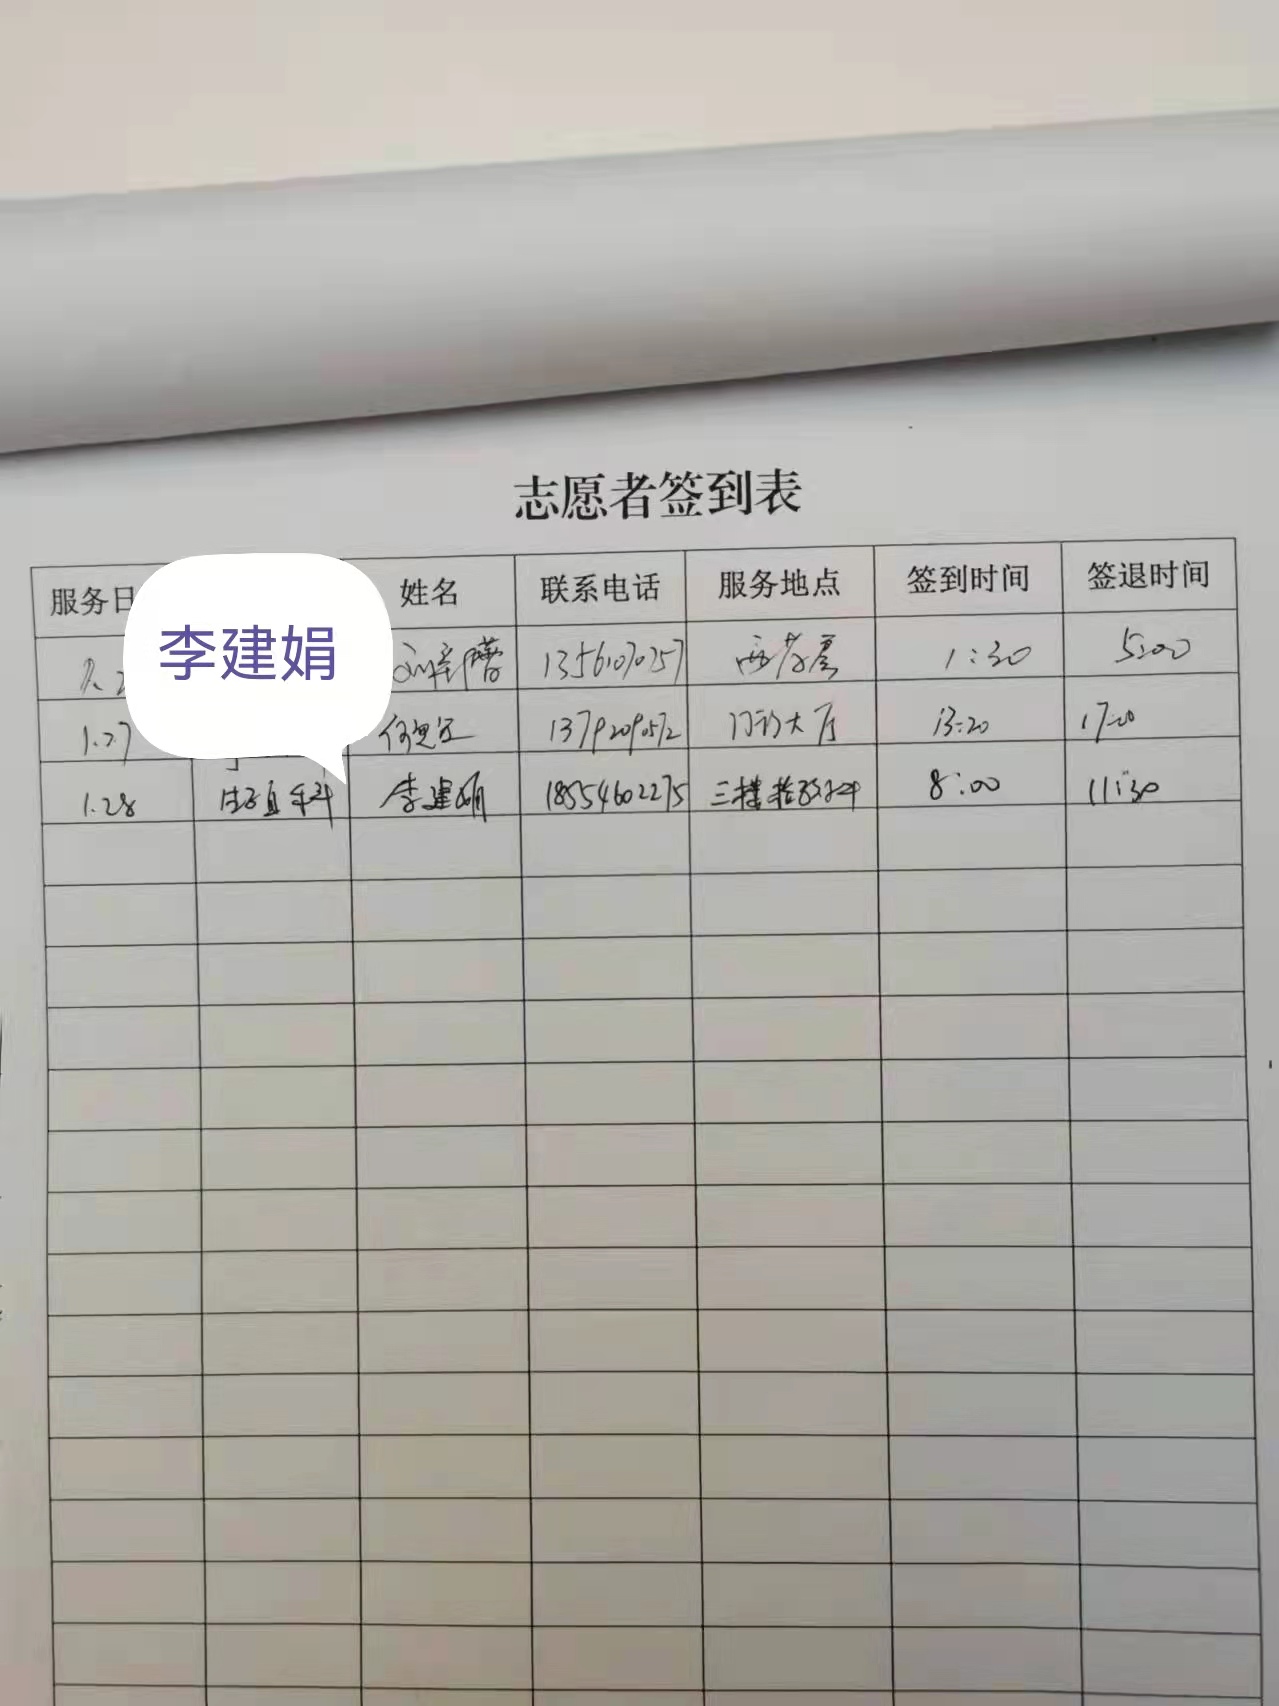 志愿者签到表
服务日 姓名 联系电话 服务地点 签到时间 签退时间
李建娟
13561070257 1:30 5:00
1.27 13792090572 门诊大厅 13:20 17:00
1.28 生殖科 李建娟 18554602275 三楼 8:00 11:30